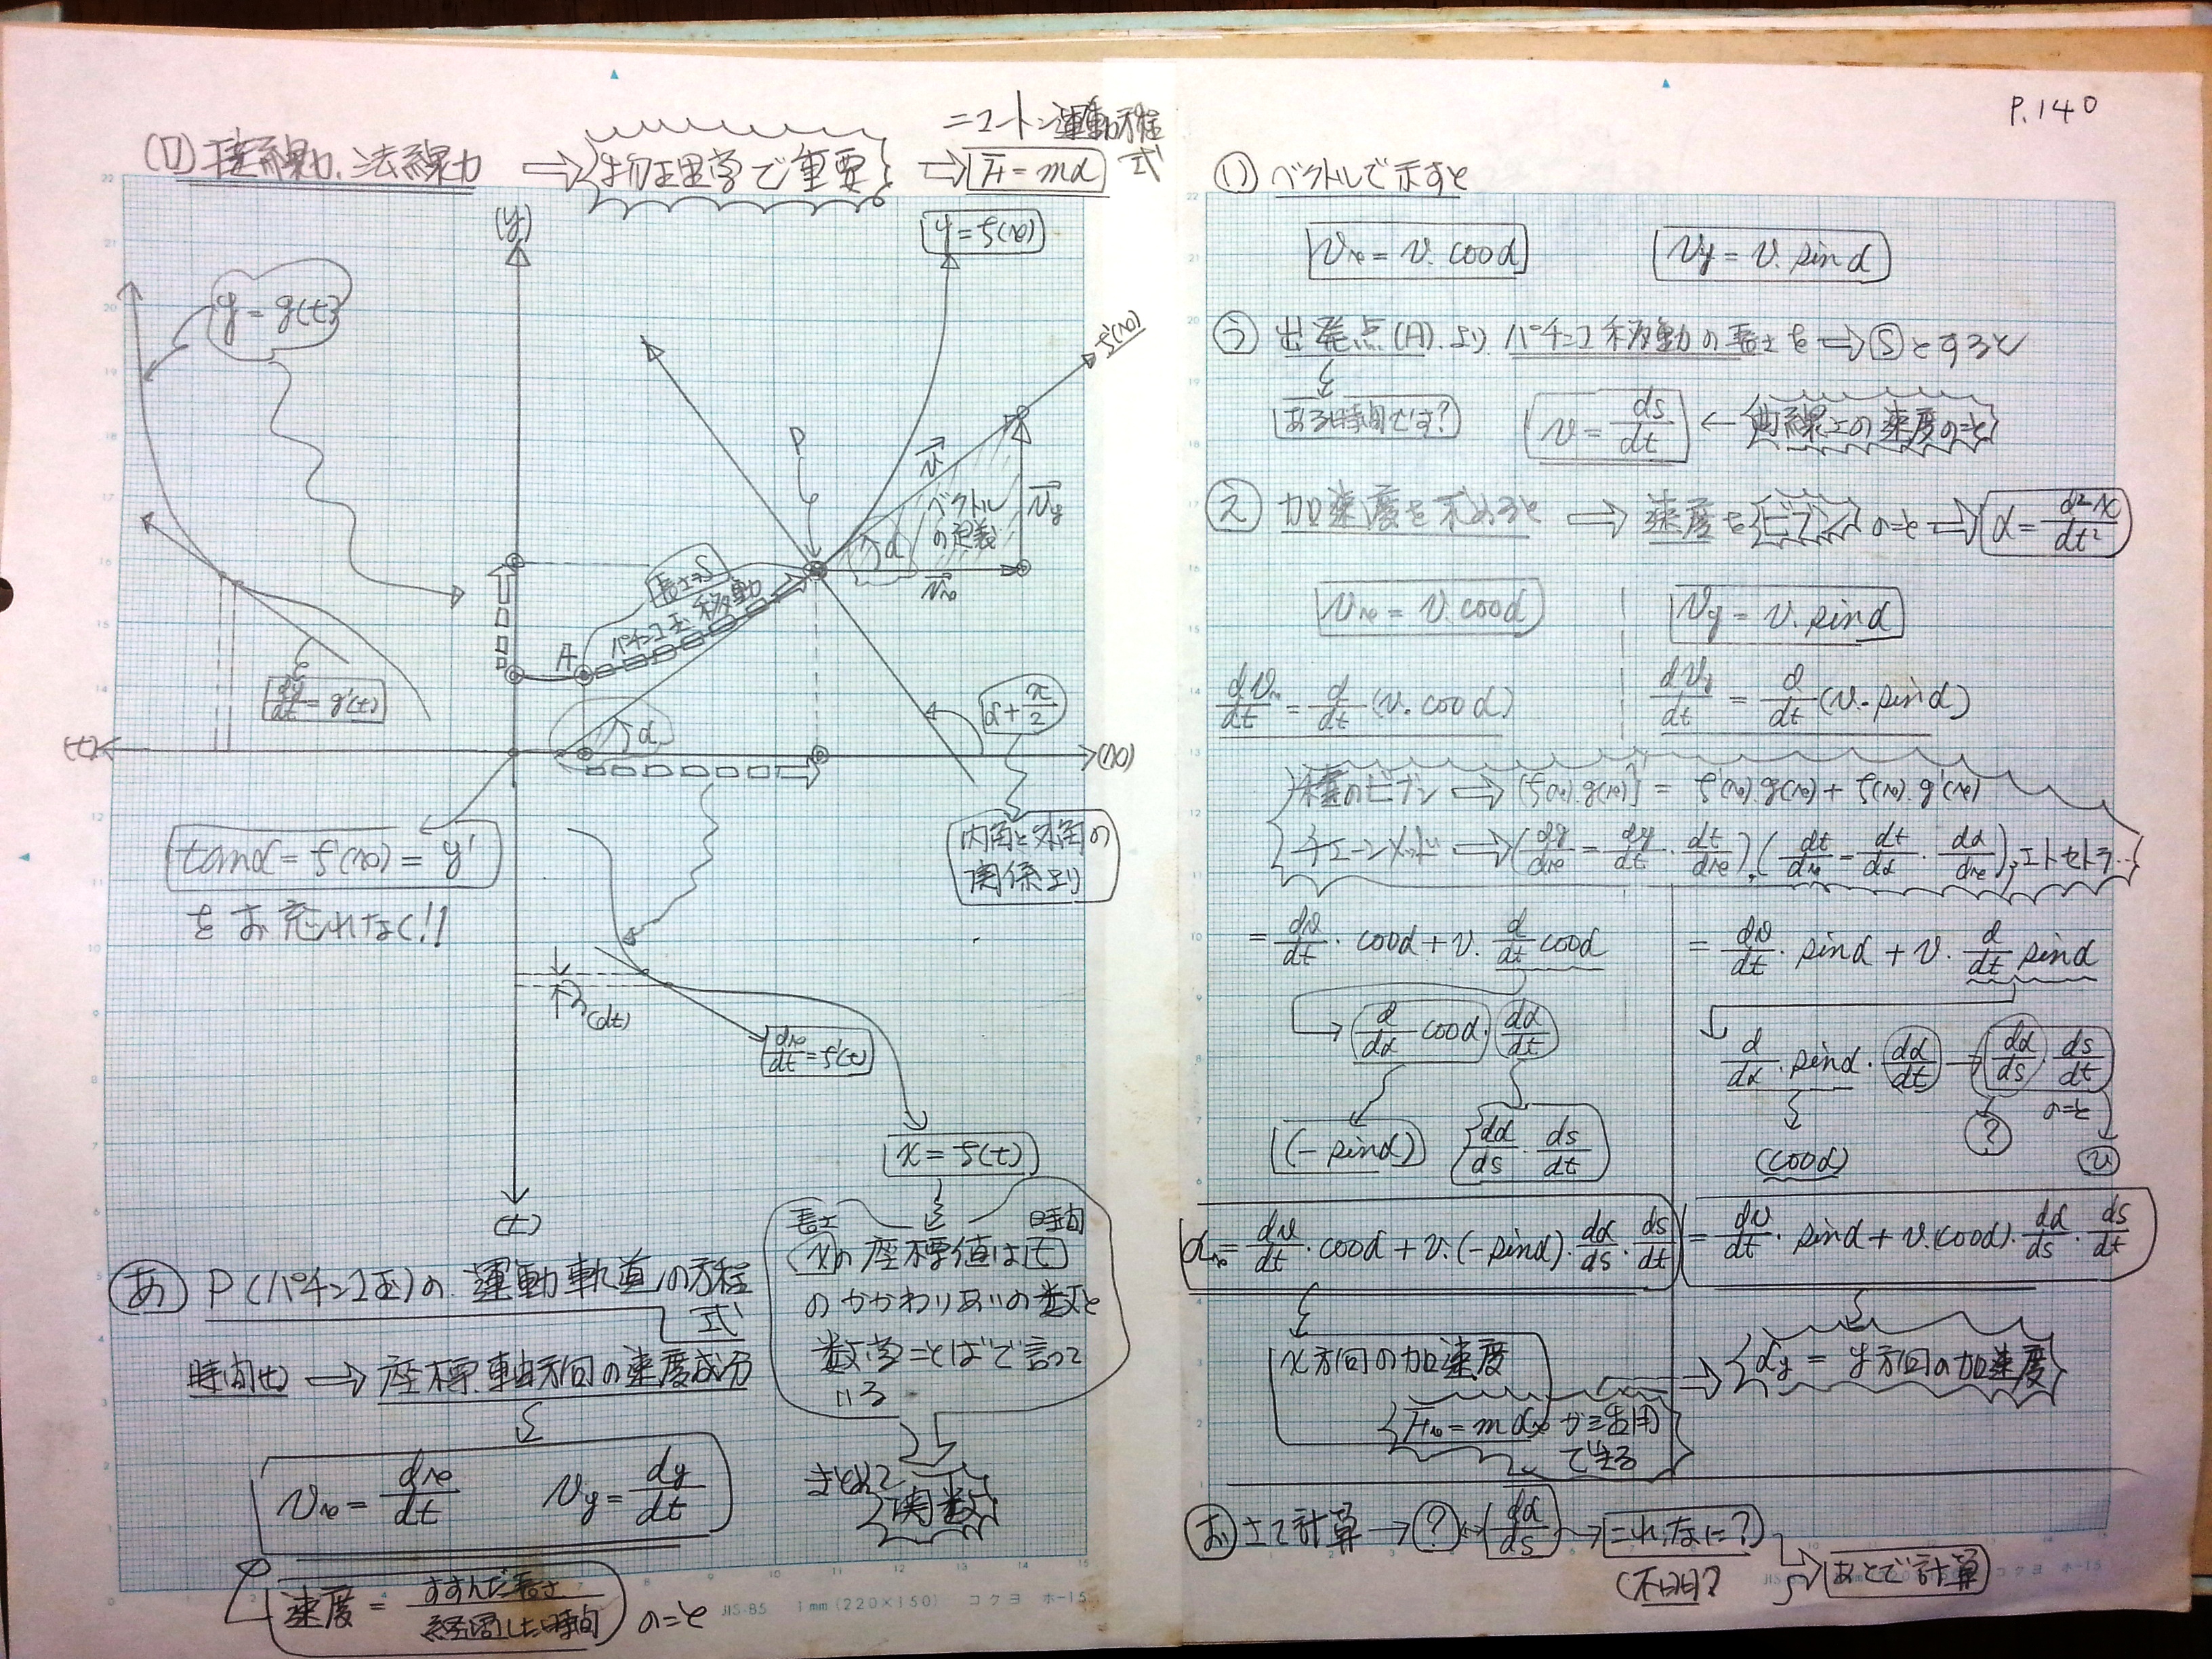 P.140
(ロ) 接線力、法線力 ⇒ 物理学で重要 ⇒ F = mα
ニュートン運動方程式
(y)
y = f(x)
y = g(t)
f'(x)
P
v
ベクトルの定義
vy
α
vx
長さ=S
パチンコ玉移動
A
dy/dt = g'(t)
α
α + π/2
(t)
(x)
内角と外角の
関係より
tanα = f'(x) = y'
をお忘れなく!!
(dt)
dx/dt = f'(t)
x = f(t)
(t)
長さ 時間
xの座標値はt
のかかわりあいの数と
数学ことばで言って
いる
まとめて
関数
あ P(パチンコ玉)の運動軌道の方程
式
時間(t) ⇒ 座標軸方向の速度成分
vx = dx/dt vy = dy/dt
速度 = すすんだ長さ/経過した時間 のこと
JIS-B5 1mm(220×150) コクヨ ホ-15
い ベクトルで示すと
vx = v・cosα vy = v・sinα
う 出発点(A)よりパチンコ移動の長さを ⇒ Sとすると
ある時間です?
v = ds/dt ← 曲線上の速度のこと
え 加速度を求めると ⇒ 速度をビブンのこと ⇒ α = d²x/dt²
vx = v・cosα vy = v・sinα
dvx/dt = d/dt (v・cosα) dvy/dt = d/dt (v・sinα)
積のビブン ⇒ [f(x)・g(x)]' = f'(x)・g(x) + f(x)・g'(x)
チエーンメソド ⇒ (dy/dx = dy/dt・dt/dx), (dt/dx = dt/dα・dα/dx), エトセトラ…
= dv/dt・cosα + v・d/dt cosα = dv/dt・sinα + v・d/dt sinα
d/dα cosα・dα/dt d/dα・sinα・dα/dt → dα/ds・ds/dt
のこと
(-sinα) dα/ds・ds/dt (cosα) ? v
αx = dv/dt・cosα + v・(-sinα)・dα/ds・ds/dt = dv/dt・sinα + v・(cosα)・dα/ds・ds/dt
x方向の加速度 αy = y方向の加速度
Fx = mαx が活用
できる
お さて計算 → ? dα/ds → これ、なに?
(不明? あとで計算
コクヨ ホ-15